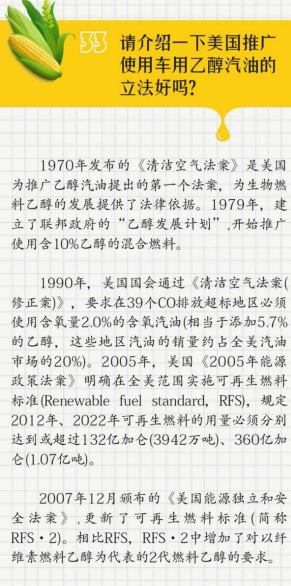 33
请介绍一下美国推广
使用车用乙醇汽油的
立法好吗?
1970年发布的《清洁空气法案》是美国
为推广乙醇汽油提出的第一个法案，为生物燃
料乙醇的发展提供了法律依据。1979年，建
立了联邦政府的“乙醇发展计划”,开始推广
使用含10%乙醇的混合燃料。
1990年，美国国会通过《清洁空气法案(
修正案)》，要求在39个CO排放超标地区必须
使用含氧量2.0%的含氧汽油(相当于添加5.7%
的乙醇，这些地区汽油的销量约占全美汽油
市场的20%)。2005年，美国《2005年能源
政策法案》明确在全美范围实施可再生燃料
标准(Renewable fuel standard，RFS)，规定
2012年、2022年可再生燃料的用量必须分别
达到或超过132亿加仑(3942万吨)、360亿加
仑(1.07亿吨)。
2007年12月颁布的《美国能源独立和安
全法案》,更新了可再生燃料标准(简称
RFS·2)。相比RFS，RFS·2中增加了对以纤
维素燃料乙醇为代表的2代燃料乙醇的要求。